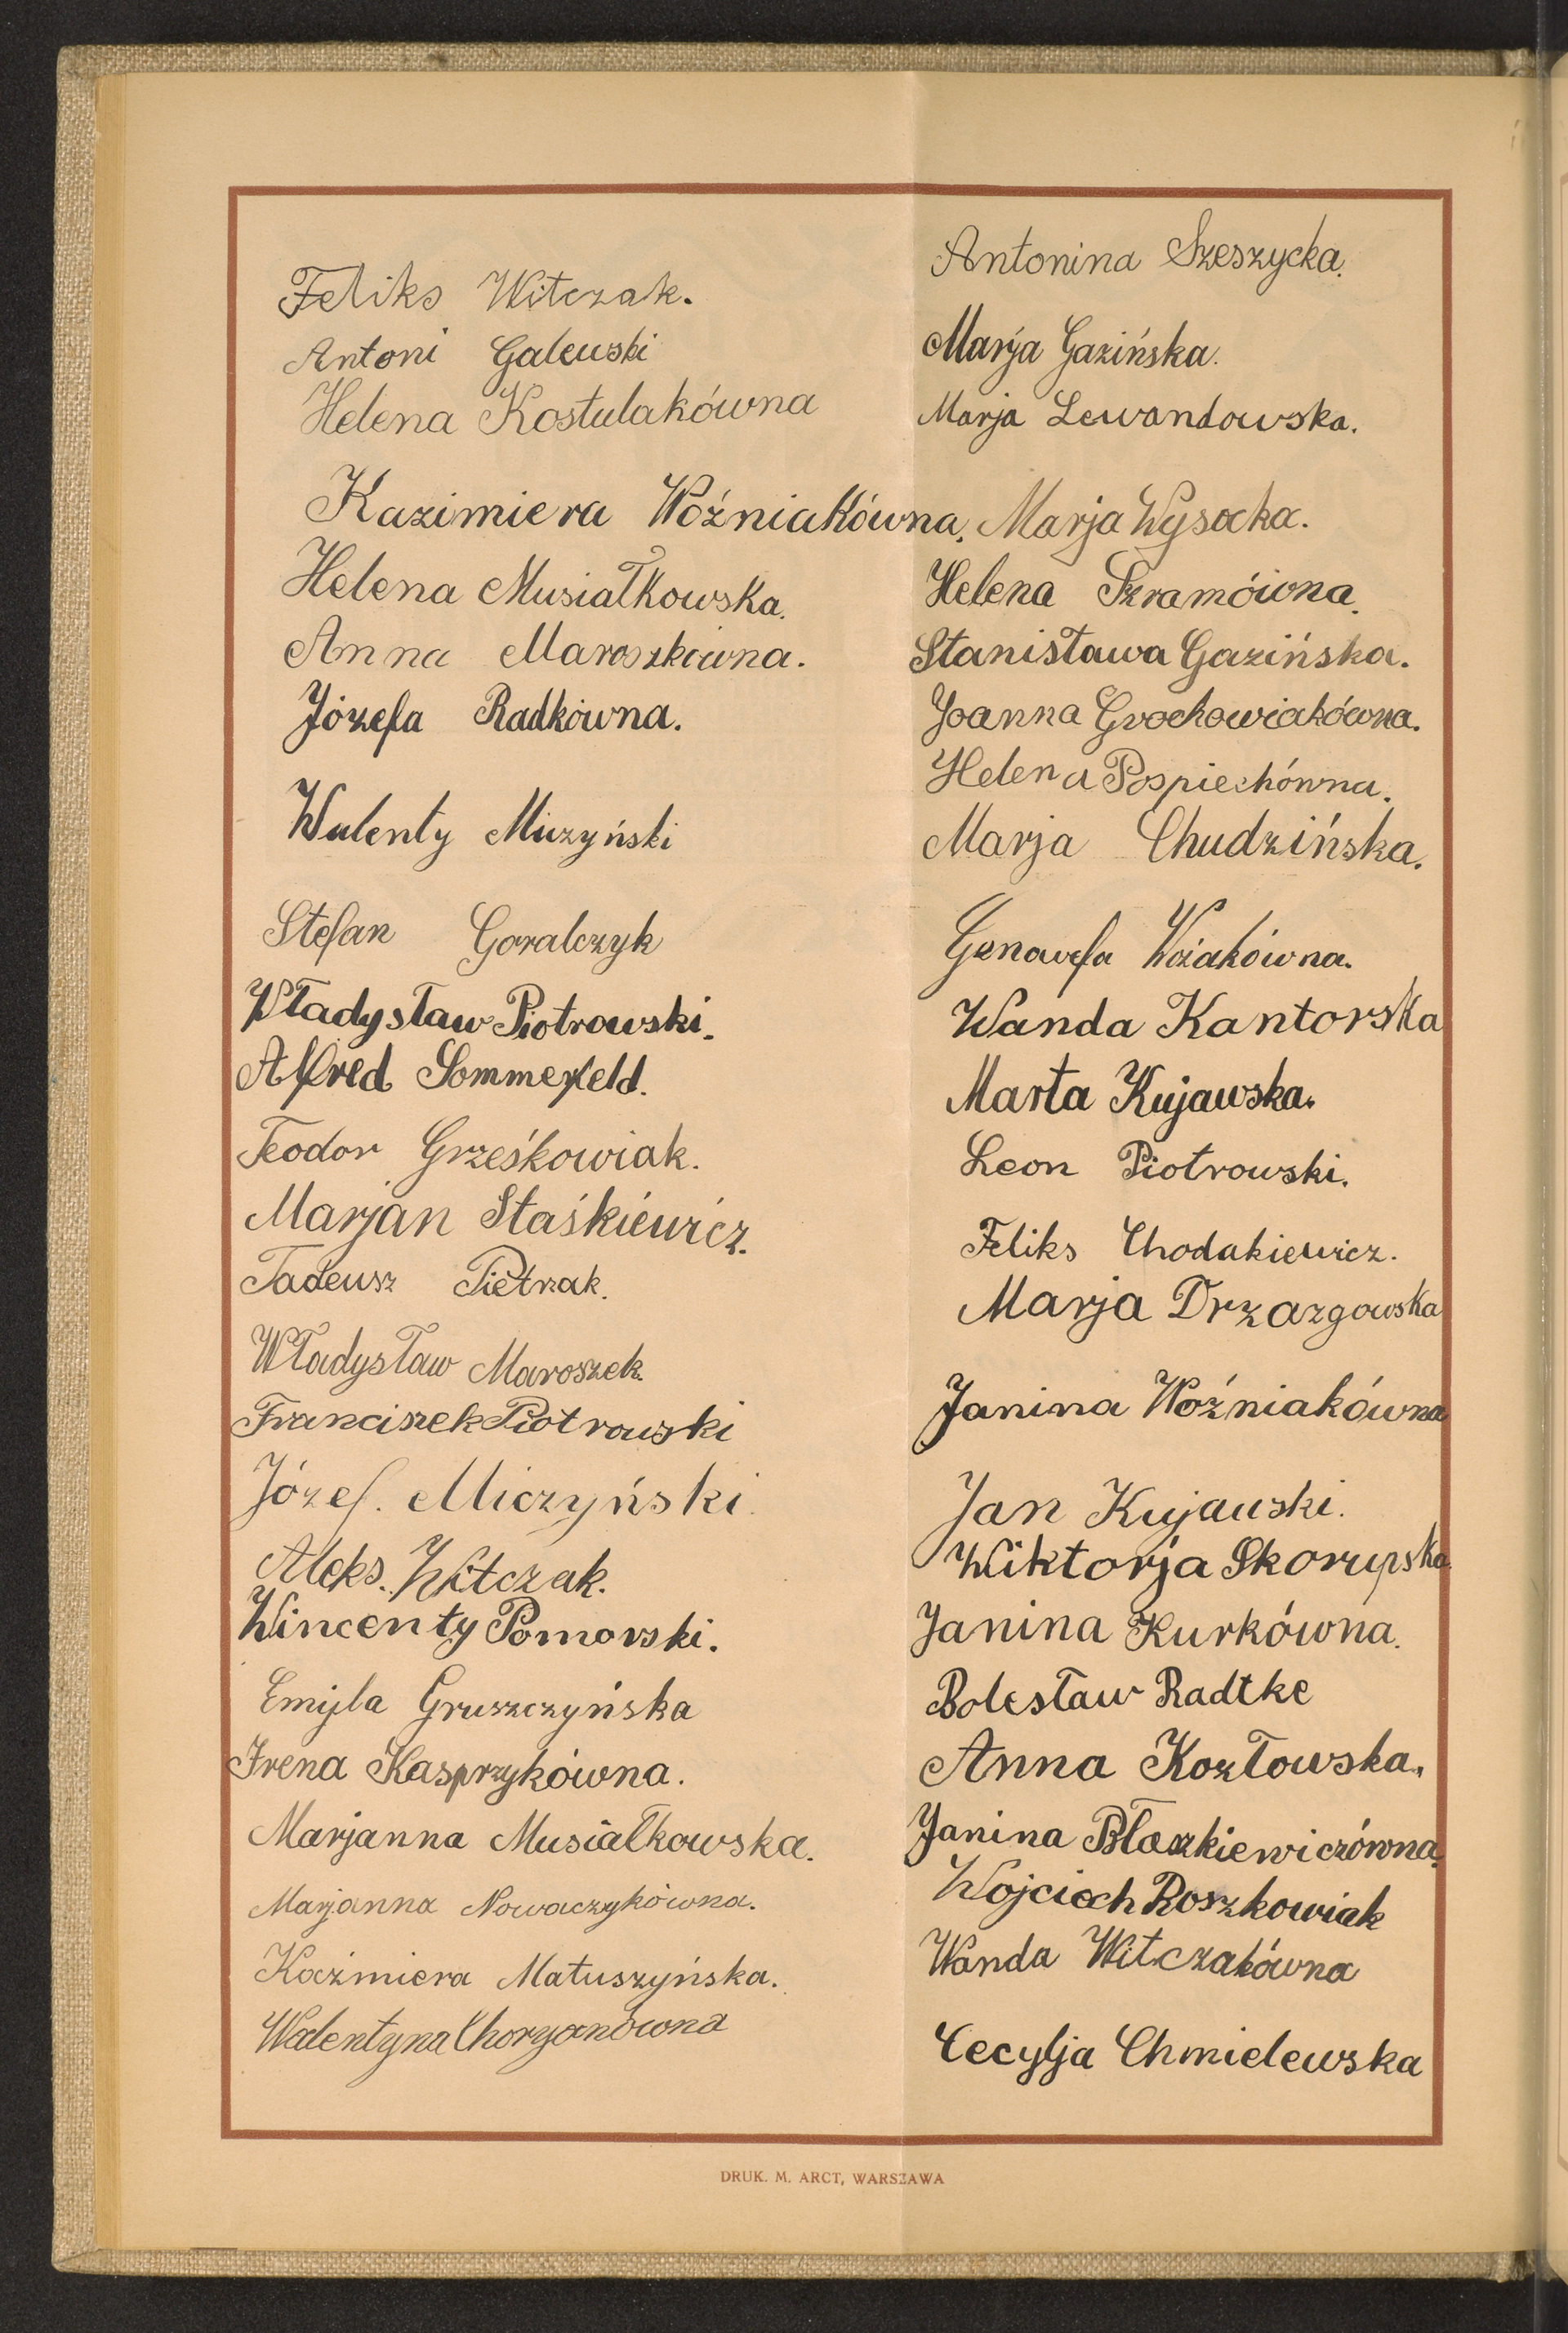 Feliks Witczak.
Antoni Galewski
Helena Kostulakówna
Kazimiera Woźniakówna.
Helena Musiałkowska.
Anna Maroszkówna.
Józefa Radkówna.
Walenty Miczyński
Stefan Goralczyk
Władysław Piotrowski.
Alfred Sommerfeld.
Teodor Grześkowiak.
Marjan Staśkiewicz.
Tadeusz Pietrzak.
Władysław Maroszek.
Franciszek Piotrowski
Józef. Miczyński.
Aleks. Witczak.
Wincenty Pomorski.
Emijla Gruszczyńska
Irena Kasprzykówna.
Marjanna Musiałkowska.
Marjanna Nowaczykówna.
Kaźmiera Matuszyńska.
Walentyna Choryanówna
Antonina Szeszycka.
Marja Gazińska.
Marja Lewandowska.
Marja Wysocka.
Helena Szramówna.
Stanisława Gazińska.
Joanna Grochowiakówna.
Helena Pospiechówna.
Marja Chudzińska.
Genowefa Woziakówna.
Wanda Kantorska
Marta Kujawska.
Leon Piotrowski.
Feliks Chodakiewicz.
Marja Drzazgowska
Janina Woźniakówna
Jan Kujawski.
Wiktorja Skorupska.
Janina Kurkówna.
Bolesław Radtke
Anna Kozłowska.
Janina Błaszkiewiczówna.
Wojciech Roszkowiak
Wanda Witczakówna
Cecylja Chmielewska
DRUK. M. ARCT, WARSZAWA